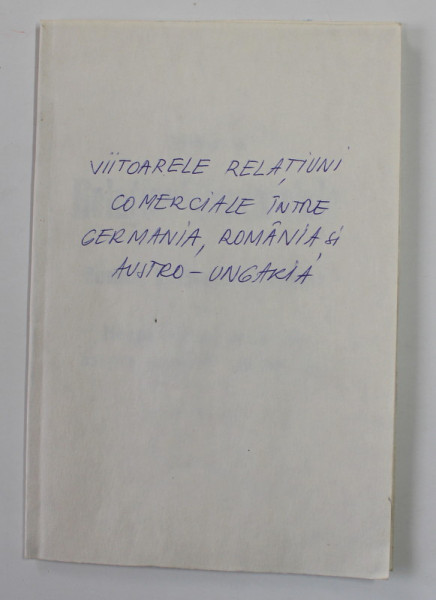 VIITOARELE RELAȚIUNI
COMERCIALE ÎNTRE
GERMANIA, ROMÂNIA și
AUSTRO-UNGARIA